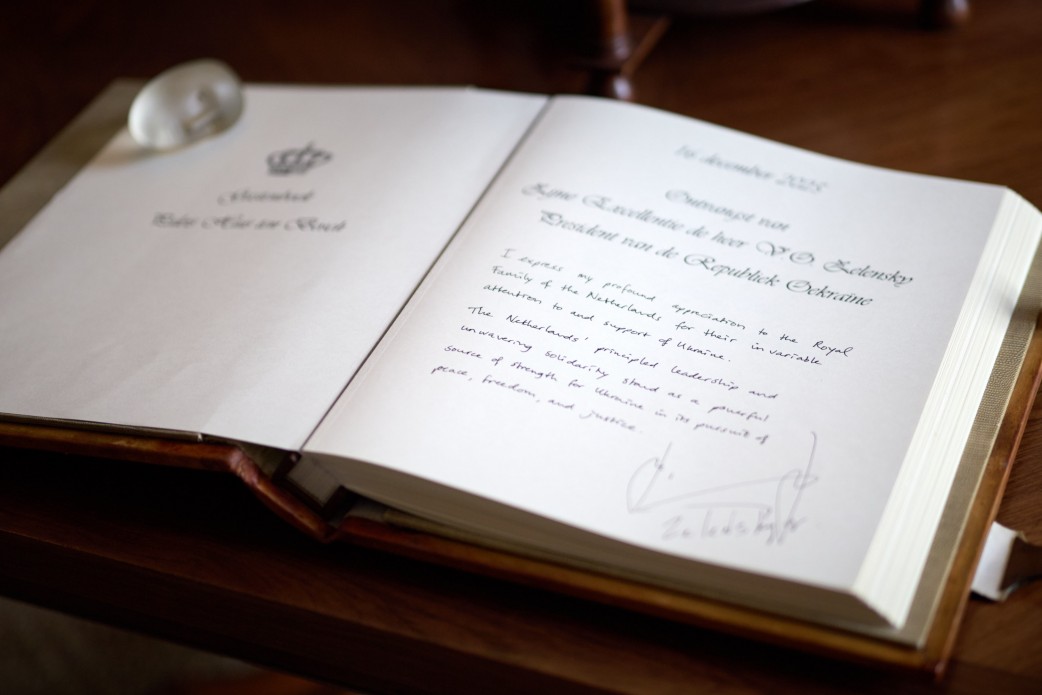 Gastenboek
Paleis Huis ten Bosch
16 december 2025
Ontvangst van
Zijne Excellentie de heer V.O. Zelensky
President van de Republiek Oekraïne
I express my profound appreciation to the Royal
Family of the Netherlands for their invariable
attention to and support of Ukraine.
The Netherlands' principled leadership and
unwavering solidarity stand as a powerful
source of strength for Ukraine in its pursuit of
peace, freedom, and justice.